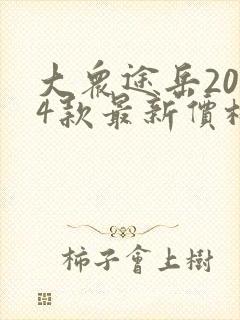 大眾途岳20
4款最新價格
柿子會上樹